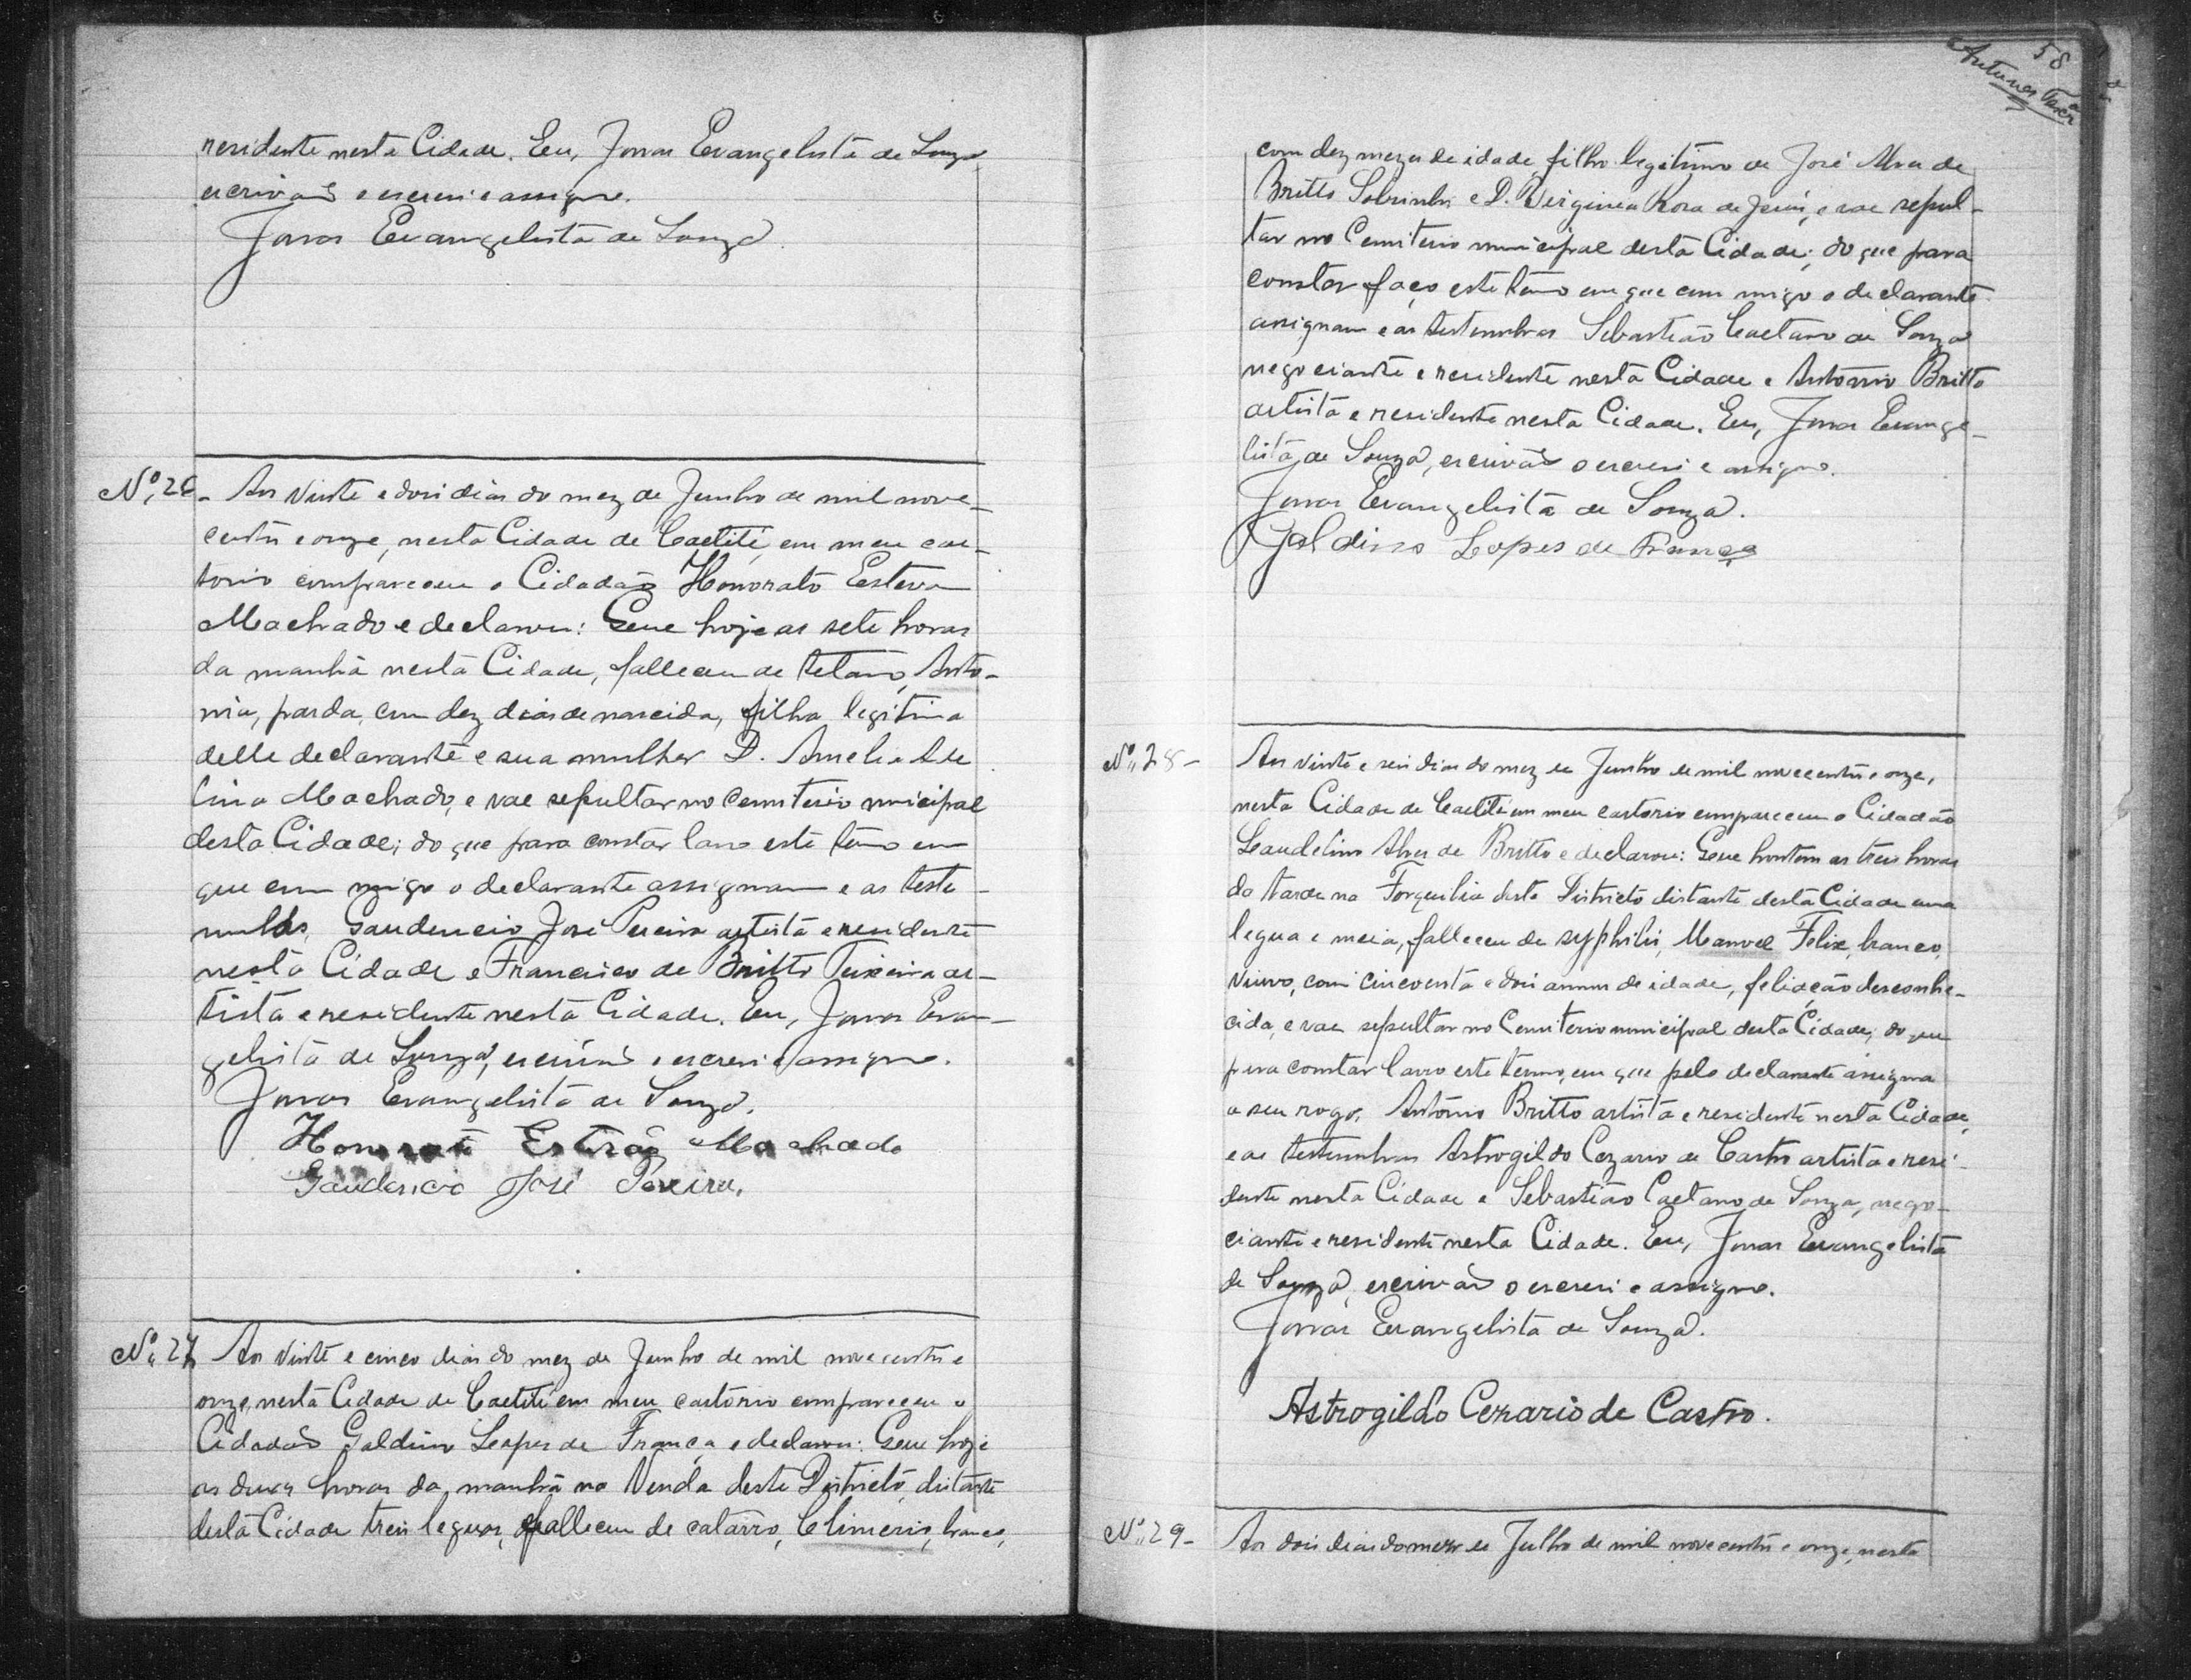 residente nesta Cidade. Eu, Jonas Evangelista de Souza
escrivão o escrevi e assigno.
Jonas Evangelista de Souza
Nº 26 - Aos vinte e dois dias do mez de Junho de mil nove-
centos e onze, nesta Cidade de Caetité, em meu car-
torio compareceu o Cidadão Honorato Esteva
Machado e declarou: Que hoje as sete horas
da manhã nesta Cidade, falleceu de tetano, Anto-
nia, parda, com dez dias de nascida, filha legitima
delle declarante e sua mulher D. Amelia Ade
lina Machado, e vae sepultar no Cemiterio municipal
desta Cidade; do que para constar lavro este termo em
que com migo o declarante assignam e as teste-
munhas, Gaudencio José Pereira artista e residente
nesta Cidade e Francisco de Britto Teixeira ar-
tista e residente nesta Cidade. Eu, Jonas Evan-
gelista de Souza, escrivão o escrevi e assigno.
Jonas Evangelista de Souza.
Honorato Machado
Gaudencio José Pereira.
Nº 27 Aos vinte e cinco dias do mez de Junho de mil novecentos e
onze, nesta Cidade de Caetité em meu cartorio compareceu o
Cidadão Galdino Lopes de França e declarou: Que hoje
as duas horas da manhã na Venda deste Districto, distante
desta Cidade treis leguas, falleceu de catarro, Climerio, branco,
58
Antunes
com dez mezes de idade, filho legitimo de José Alves de
Britto Sobrinho e D. Virginea Rosa de Jesus, e vae sepul-
tar no Cemiterio municipal desta Cidade; do que para
constar faço este termo em que com migo o declarante
assignam e as testemunhas Sebastião Caetano de Souza
negociante e residente nesta Cidade e Antonio Britto
artista e residente nesta Cidade. Eu, Jonas Evange-
lista de Souza, escrivão o escrevi e assigno.
Jonas Evangelista de Souza.
Galdino Lopes de França
Nº 28 - Aos vinte e seis dias do mez de Junho de mil novecentos e onze,
nesta Cidade de Caetité em meu cartorio compareceu o Cidadão
Laudelino Alves de Britto e declarou: Que hontem as treis horas
da tarde na Forquilha deste Districto distante desta Cidade uma
legua e meia, falleceu de syphilis, Manoel Felix, branco,
viuvo, com cincoenta e dois annos de idade, feliação desconhe-
cida, e vae sepultar no Cemiterio municipal desta Cidade; do que
para constar lavro este termo, em que pelo declarante assigna
a seu rogo, Antonio Britto artista e residente nesta Cidade,
e as testemunhas Astrogildo Cezario de Castro artista e resi-
dente nesta Cidade e Sebastião Caetano de Souza, nego-
ciante e residente nesta Cidade. Eu, Jonas Evangelista
de Souza, escrivão o escrevi e assigno.
Jonas Evangelista de Souza.
Astrogildo Cezario de Castro.
Nº 29 - Aos dois dias do mez de Julho de mil novecentos e onze, nesta